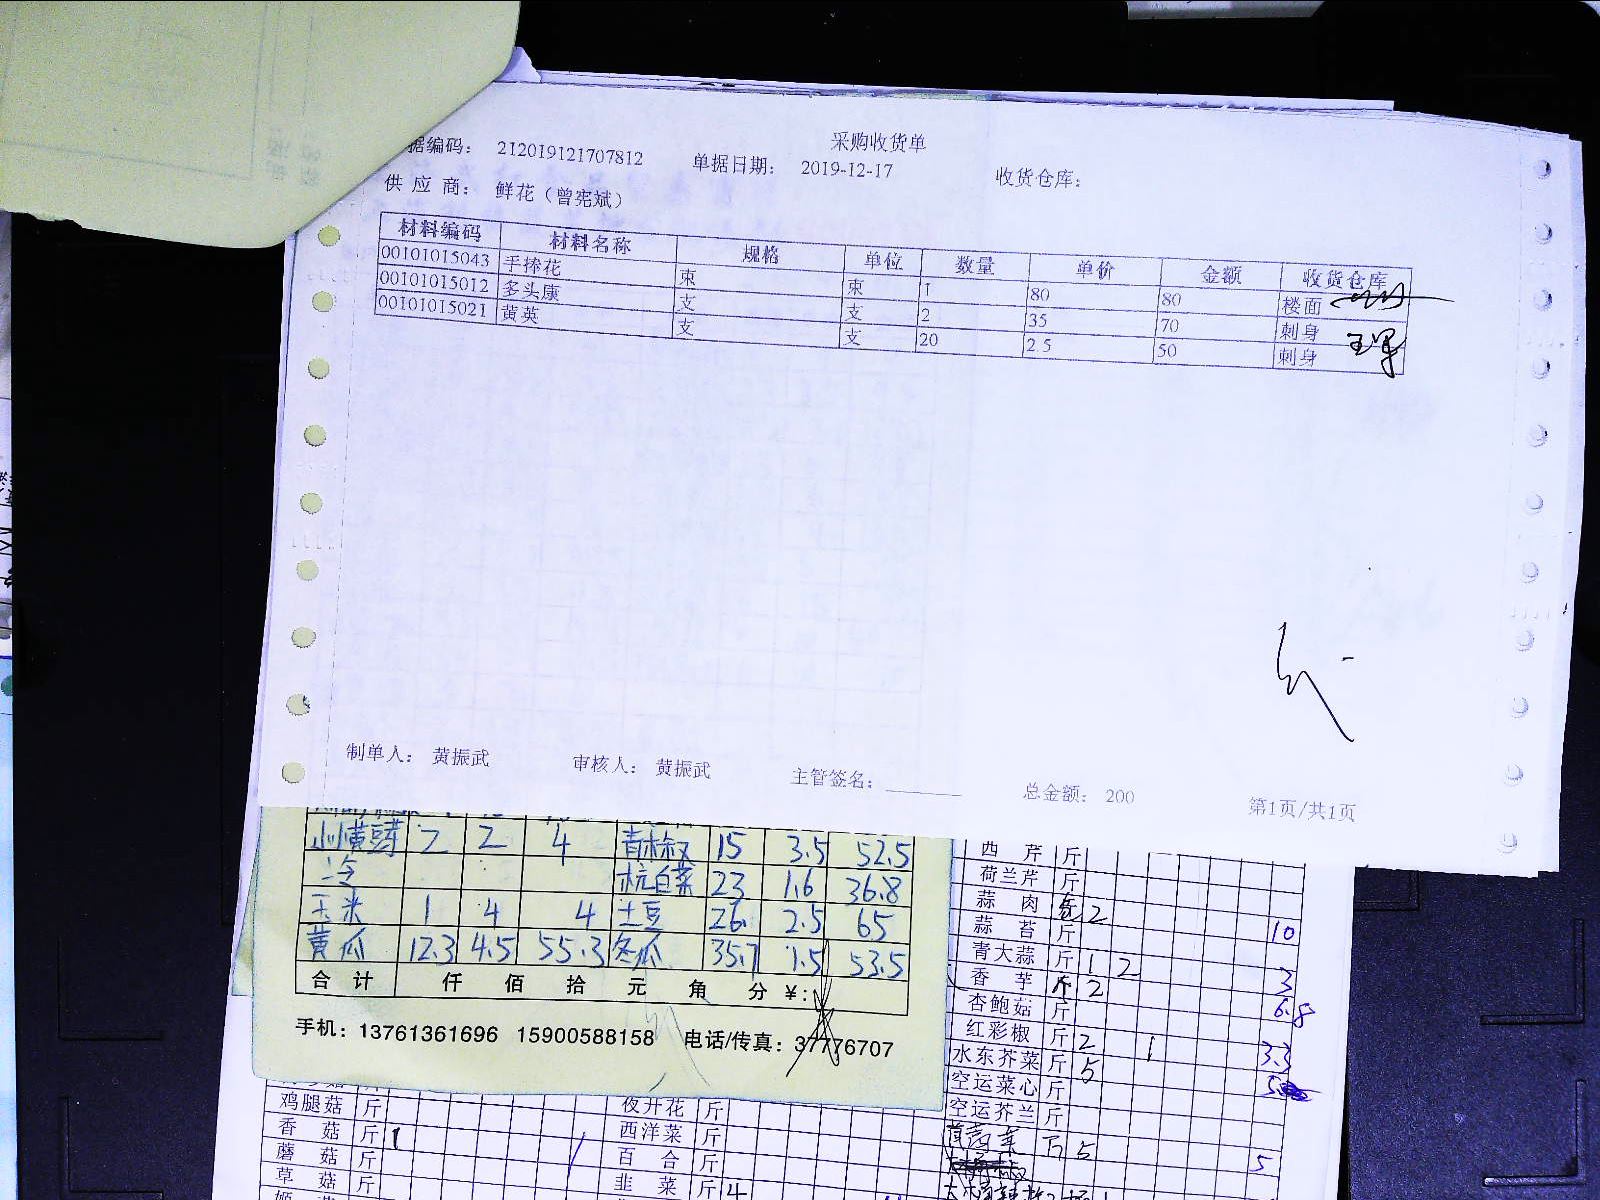 采购收货单
据编码： 212019121707812 单据日期： 2019-12-17 收货仓库：
供 应 商： 鲜花（曾宪斌）
材料编码 材料名称 规格 单位 数量 单价 金额 收货仓库
00101015043 手捧花 束 束 1 80 80 楼面
00101015012 多头康 支 支 2 35 70 刺身
00101015021 黄英 支 支 20 2.5 50 刺身
制单人： 黄振武 审核人： 黄振武 主管签名： 总金额： 200 第1页/共1页
小黄豆芽 2 2 4 青椒 15 3.5 52.5
冷 杭白菜 23 1.6 36.8
玉米 1 4 4 土豆 26. 2.5 65
黄瓜 12.3 4.5 55.3 冬瓜 35.7 1.5 53.5
合 计 仟 佰 拾 元 角 分 ¥:
手机：13761361696 15900588158 电话/传真：37776707
西 芹 斤
荷兰芹 斤
蒜 肉 2
蒜 苔 斤 10
青大蒜 斤 1 2
香 芋 斤 2 3
杏鲍菇 斤 6.8
红彩椒 斤 2 1
水东芥菜 斤 5 3.3
空运菜心 斤
空运芥兰 斤
5
鸡腿菇 斤 夜开花 斤
香 菇 斤 1 西洋菜 斤
蘑 菇 斤 百 合 斤
草 菇 斤 韭 菜 斤 4